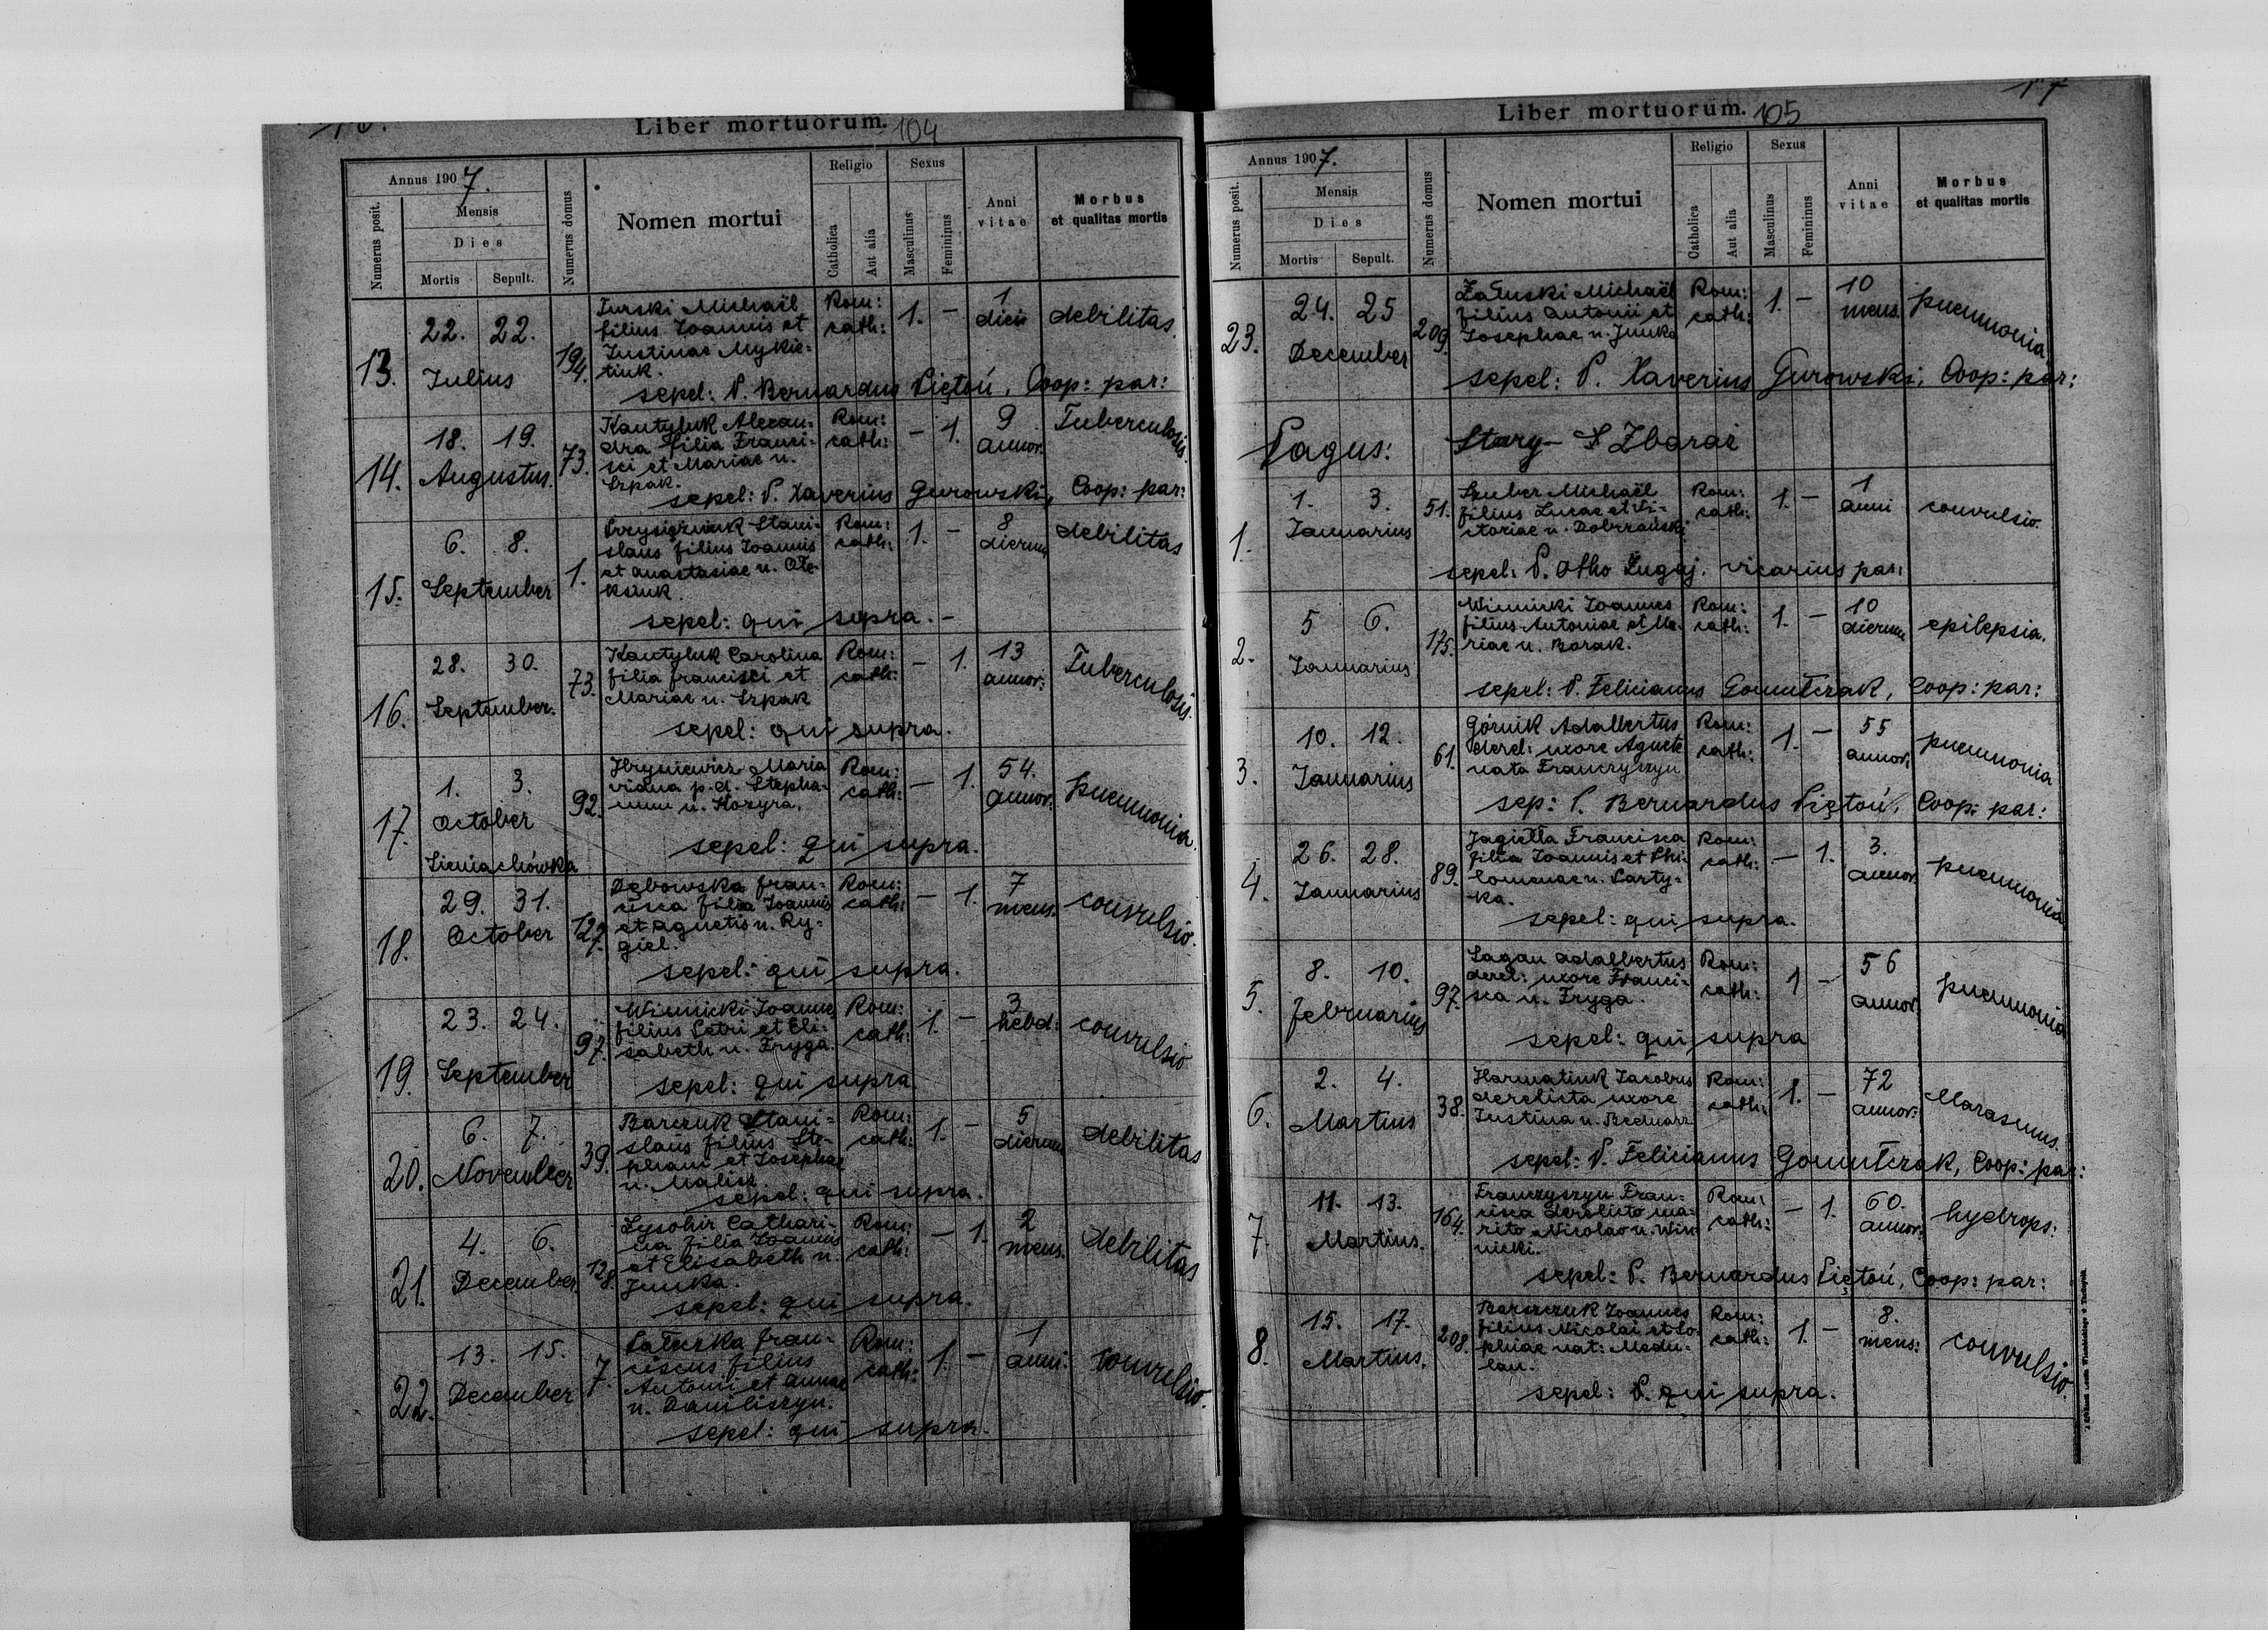 Liber mortuorum. 104
Annus 1907.
Numerus posit.
Mensis
Dies
Mortis
Sepult.
Numerus domus
Nomen mortui
Religio
Catholica
Aut alia
Sexus
Masculinus
Femininus
Anni vitae
Morbus
et qualitas mortis
13. 22. 22. Julius 194.
Turski Michaël
filius Joannis et
Justinae Mykie-
tiuk.
Rom: cath: 1. - 1 diei debilitas
sepel: P. Bernardus Piętoń, Coop: par:
14. 18. 19. Augustus. 73.
Kantyluk Alexan-
dra filia Franci-
sci et Mariae n.
Szpak.
Rom: cath: - 1. 9 annor. Tuberculosis.
sepel: P. Xaverius Gurowski, Coop: par:
15. 6. 8. September 1.
Stani-
slaus filius Joannis
et Anastasiae n. Ole-
ksiuk.
Rom: cath: 1. - 8 dierum debilitas
sepel: qui supra. -
16. 28. 30. September. 73.
Kantyluk Carolina
filia Francisci et
Mariae n. Szpak
Rom: cath: - 1. 13 annor: Tuberculosis.
sepel: qui supra.
17. 1. 3. October 92.
Hryniewicz Maria
vidua p. d. Stepha-
num n. Kozyra.
Rom: cath: - 1. 54. annor: pneumonia.
sepel: qui supra.
Sieniachówka
18. 29. 31. October 127.
Dębowska Fran-
cisca filia Joannis
et Agnetis n. Ry-
giel.
Rom: cath: - 1. 7 mens. convulsio.
sepel: qui supra.
19. 23. 24. September 97.
Winnicki Joannes
filius Petri et Eli-
sabeth n. Fryga.
Rom: cath: 1. - 3 hebd: convulsio.
sepel: qui supra
20. 6. 7. November 39.
Barczuk Stani-
slaus filius Ste-
phani et Josephae
n. Malisz.
Rom: cath: 1. - 5 dierum debilitas
sepel: qui supra.
21. 4. 6. December. 128.
Lysohir Cathari-
na filia Joannis
et Elisabeth n.
Junka.
Rom: cath: - 1. 2 mens. debilitas
sepel: qui supra.
22. 13. 15. December 7.
Fran-
ciscus filius
Antonii et Annae
n. Daniliszyn.
Rom: cath: 1. - 1 anni: convulsio.
sepel: qui supra.
17
Liber mortuorum. 105
Annus 1907.
Numerus posit.
Mensis
Dies
Mortis
Sepult.
Numerus domus
Nomen mortui
Religio
Catholica
Aut alia
Sexus
Masculinus
Femininus
Anni vitae
Morbus
et qualitas mortis
23. 24. 25 December 209.
Załuski Michaël
filius Antonii et
Josephae n. Junka
Rom: cath: 1. - 10 mens. pneumonia.
sepel: P. Xaverius Gurowski, Coop: par:
Pagus: Stary - Zbaraż
1. 1. 3. Januarius 51.
Szuber Michaël
filius Lucae et Vi-
ctoriae n. Dobrzański
Rom: cath: 1. - 1 anni convulsio.
sepel: P. Otho Ługaj. vicarius par:
2. 5 6. Januarius 175.
Winnicki Joannes
filius Antoniae et Ma-
riae n. Borak.
Rom: cath: 1. - 10 dierum epilepsia.
sepel: P. Felicianus Gomułczak, Coop: par:
3. 10. 12. Januarius 61.
Górnik Adalbertus
derel: uxore Agnete
nata Franczyszyn
Rom: cath: 1. - 55 annor: pneumonia
sep: P. Bernardus Piętoń, Coop: par:
4. 26. 28. Januarius 89.
Jagiełła Francisca
filia Joannis et Phi-
lomenae n. Party-
ka.
Rom: cath: - 1. 3. annor. pneumonia
sepel: qui supra.
5. 8. 10. Februarius 97.
Sagan Adalbertus
derel: uxore Franci-
sca n. Fryga.
Rom: cath: 1 - 56 annor. pneumonia
sepel: qui supra
6. 2. 4. Martius 38.
Harmatiuk Jacobus
derelicta uxore
Justina n. Bednarz
Rom: cath: 1. - 72 annor: Marasmus.
sepel: P. Felicianus Gomułczak, Coop: par:
7. 11. 13. Martius. 164.
Franczyszyn Fran-
cisca derelicto ma-
rito Nicolao n. Win-
nicki.
Rom: cath: - 1. 60. annor: hydrops.
sepel: P. Bernardus Piętoń, Coop: par:
8. 15. 17. Martius. 208.
Barszczuk Joannes
filius Nicolai et So-
phiae nat: Medu-
lan.
Rom: cath: 1. - 8. mens: convulsio.
sepel: P. qui supra.